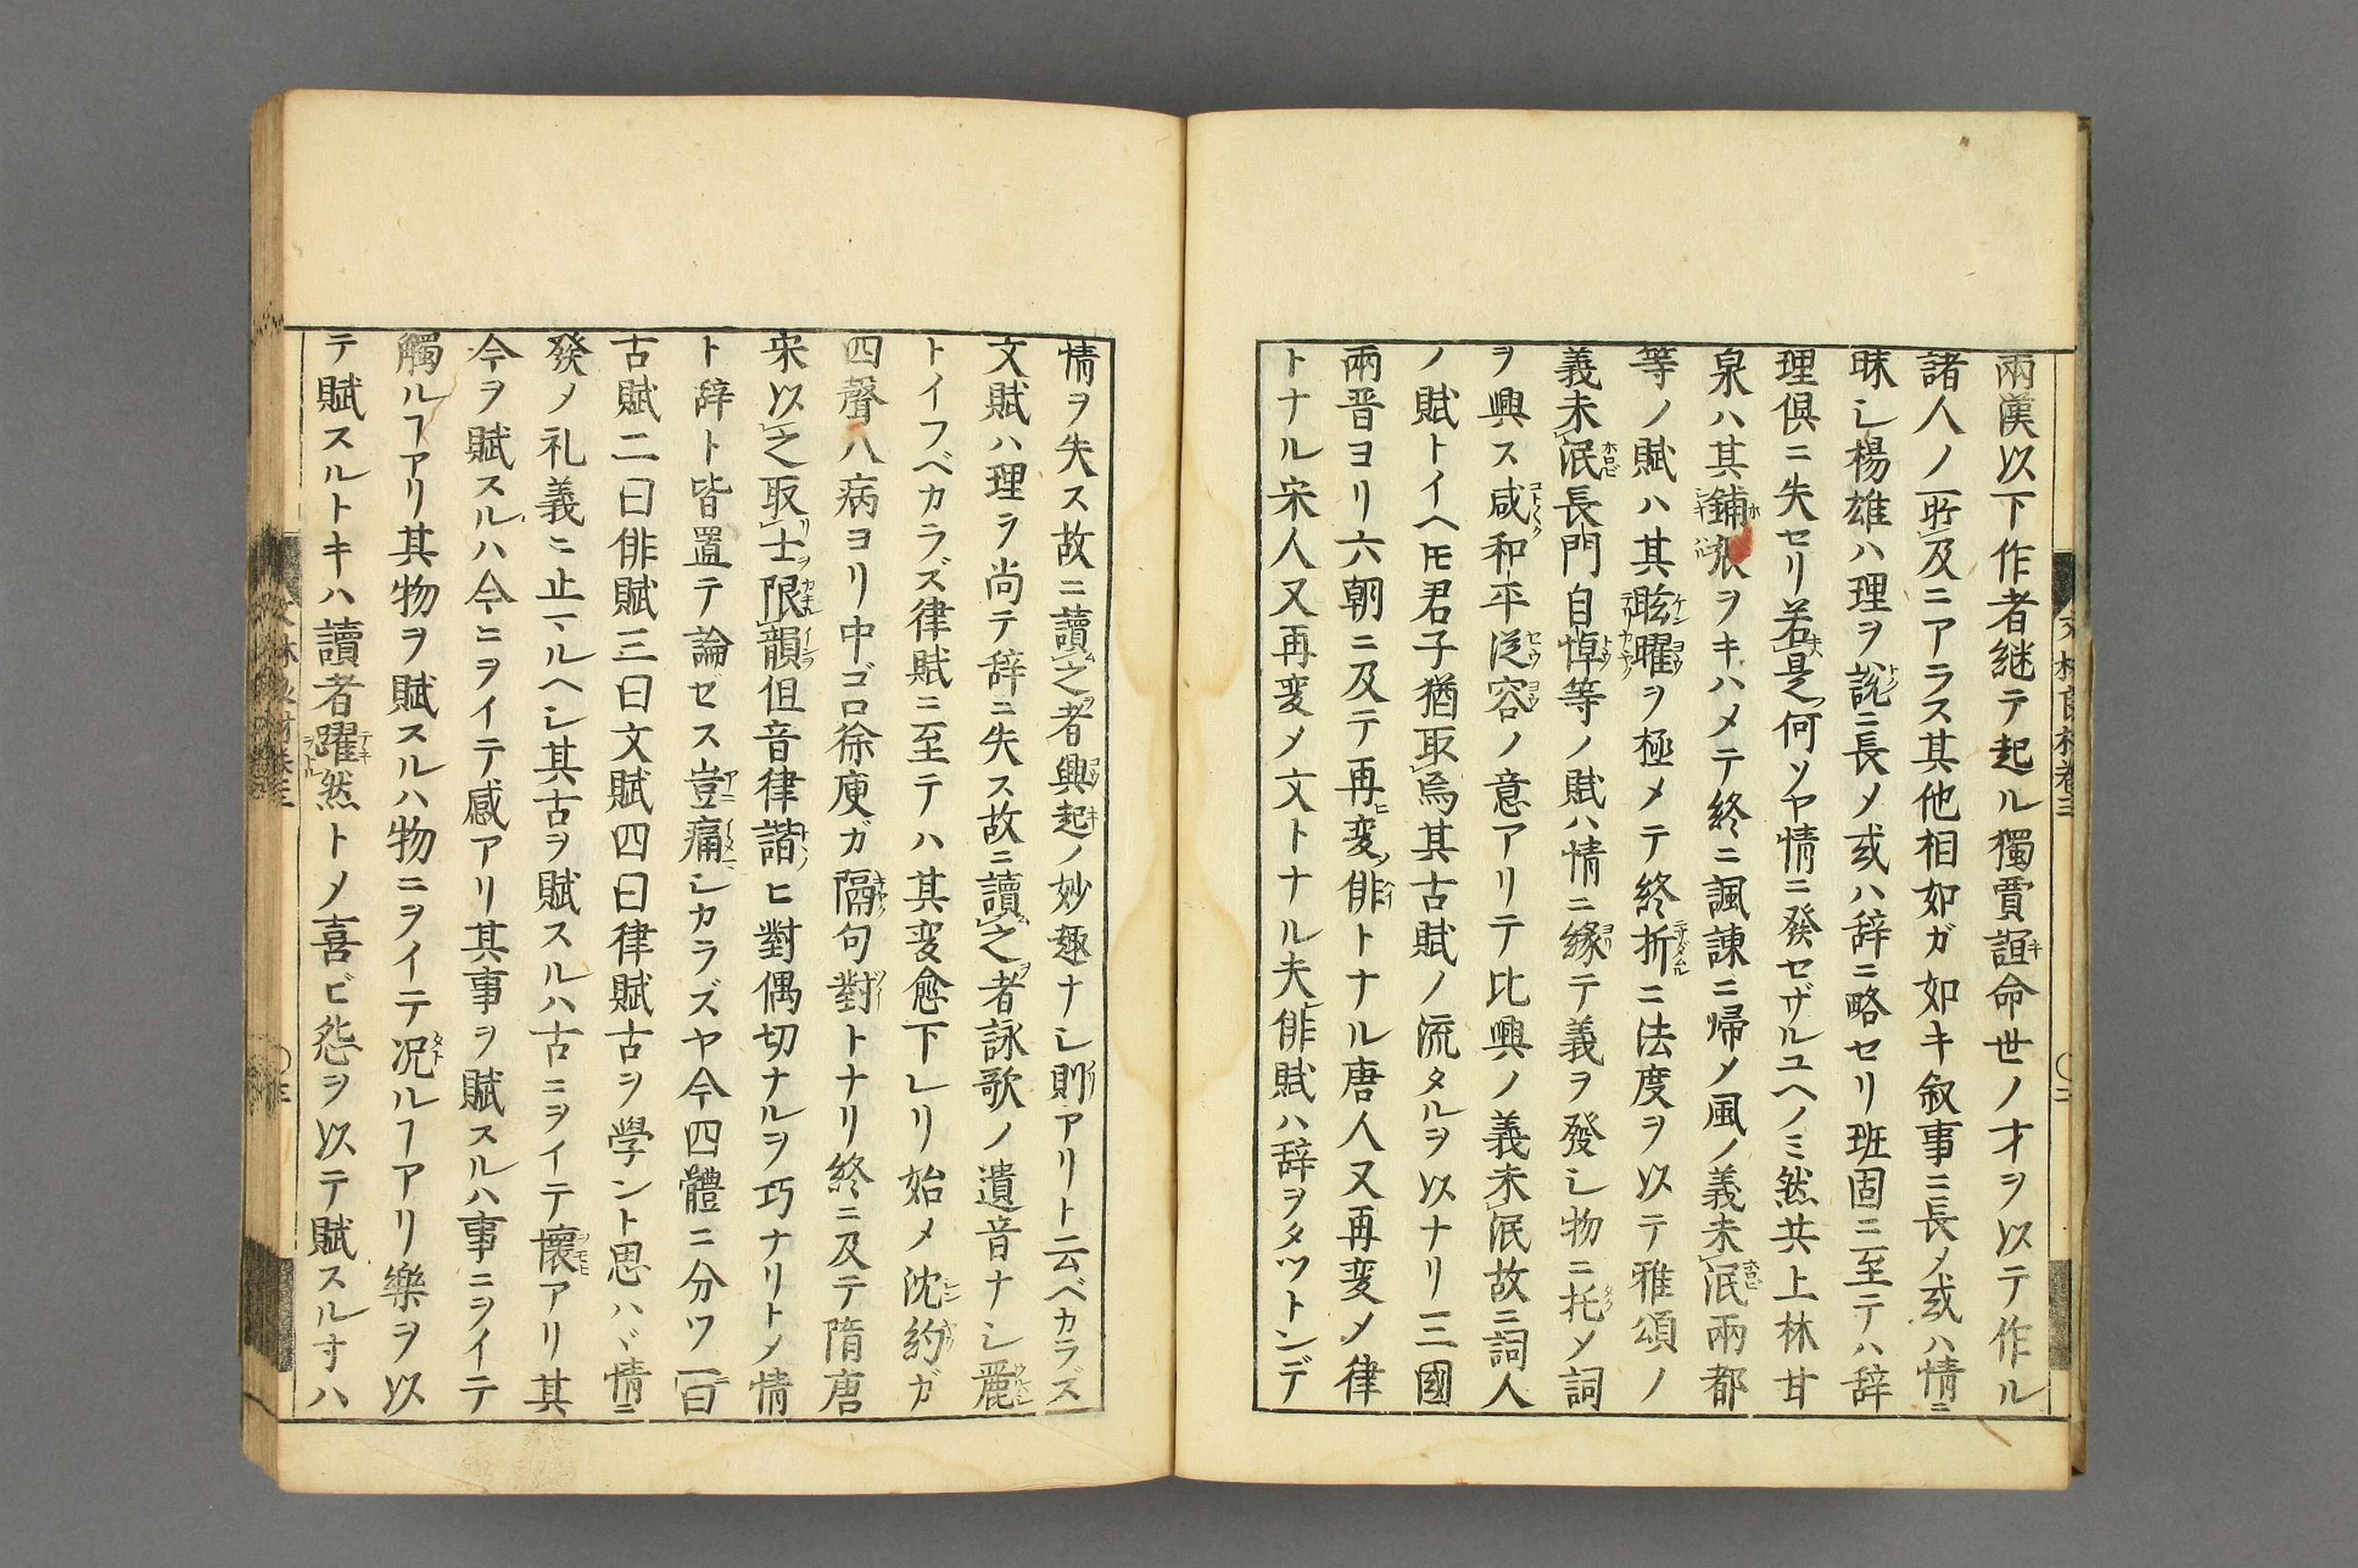 兩漢以下作者継テ起ル獨賈誼命世ノ才ヲ以テ作ル
諸人ノ所及ニアラス其他相如ガ如キ叙事ニ長〆或ハ情ニ
昧シ楊雄ハ理ヲ説ニ長〆或ハ辞ニ略セリ班固ニ至テハ辞
理倶ニ失セリ若是何ソヤ情ニ發セザルユヘノミ然共上林甘
泉ハ其鋪張ヲキハメテ終ニ諷諌ニ帰〆風ノ義未泯兩都
等ノ賦ハ其眩曜ヲ極メテ終折ニ法度ヲ以テ雅頌ノ
義未泯長門自悼等ノ賦ハ情ニ縁テ義ヲ發シ物ニ托〆詞
ヲ興ス咸和平從容ノ意アリテ比興ノ義未泯故ニ詞人
ノ賦トイヘ𪜈君子猶取焉其古賦ノ流タルヲ以ナリ三國
兩晋ヨリ六朝ニ及テ再変俳トナル唐人又再変〆律
トナル宋人又再変〆文トナル夫俳賦ハ辞ヲタツトンデ
情ヲ失ス故ニ讀之者興起ノ妙趣ナシ則アリト云ベカラズ
文賦ハ理ラ尚テ辞ニ失ス故ニ讀之者詠歌ノ遺音ナシ麗
トイフベカラズ律賦ニ至テハ其変愈下レリ始メ沈約ガ
四聲八病ヨリ中ゴロ徐庾ガ隔句對トナリ終ニ及テ隋唐
宋以之取士限韻但音律諧ヒ對偶切ナルヲ巧ナリト〆情
ト辞ト皆置テ論ゼス豈痛シカラズヤ今四體ニ分ワ一曰
古賦二曰俳賦三曰文賦四曰律賦古ヲ學ント思ハヾ情ニ
發〆礼義ニ止マルヘシ其古ヲ賦スルハ古ニヲイテ懷アリ其
今ヲ賦スルハ今ニヲイテ感アリ其事ヲ賦スルハ事ニヲイテ
觸ルヿアリ其物ヲ賦スルハ物ニヲイテ况ルヿアリ樂ヲ以
テ賦スルトキハ讀者躍然ト〆喜ビ怨ヲ以テ賦スル寸ハ